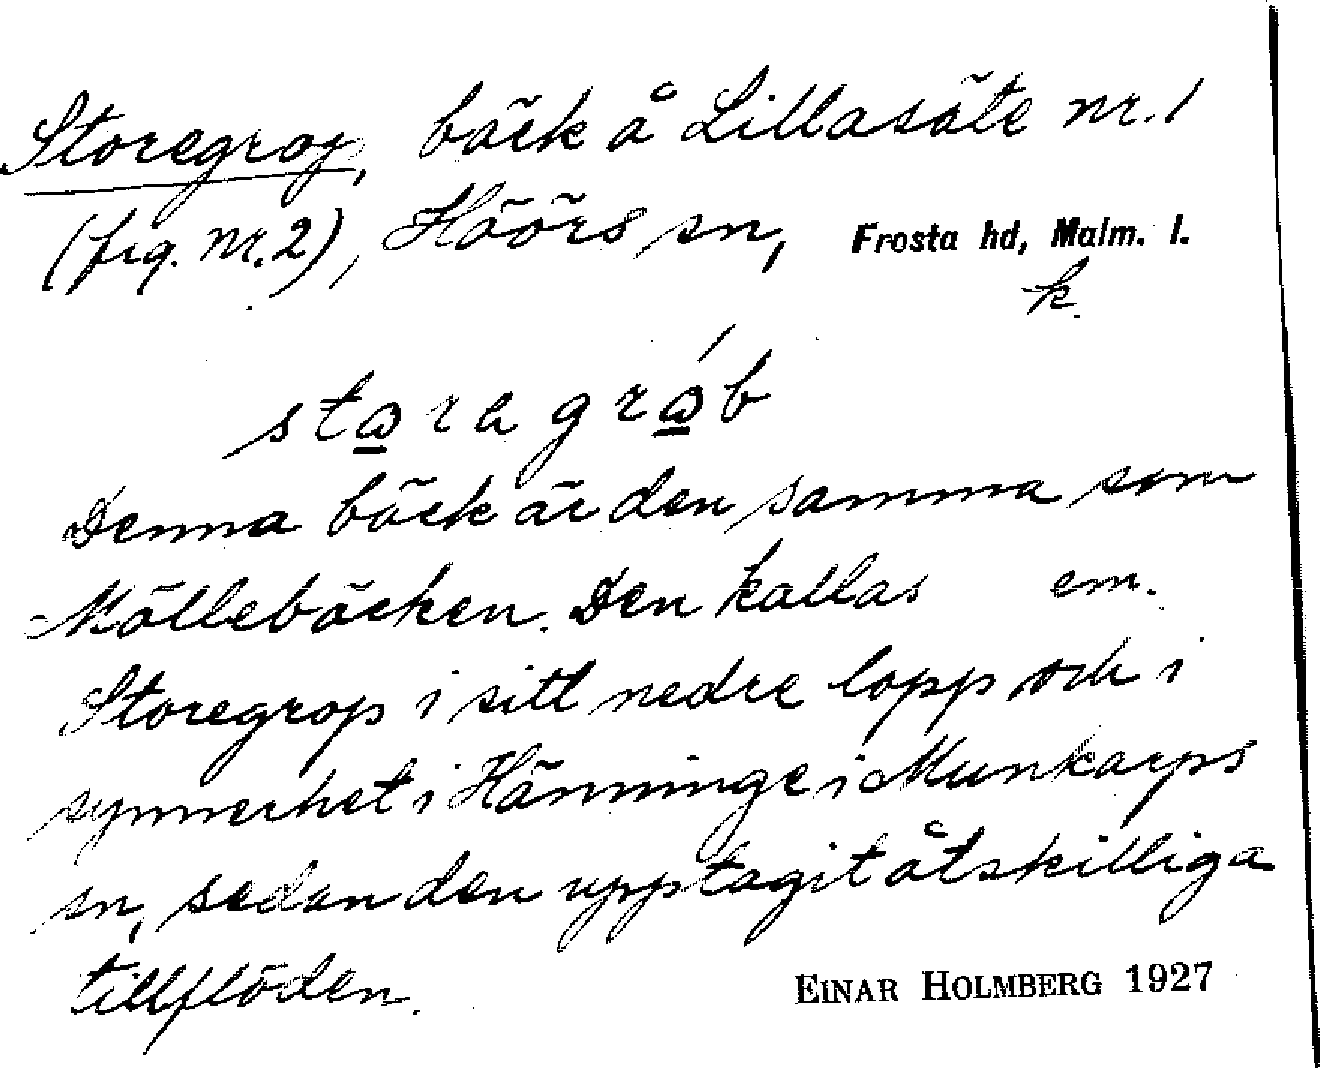 Storegrop, bäck å Lillasäte nr. 1
(frg. nr. 2), Höörs sn, Frosta hd, Malm. l.
k.
stωra grώb
Denna bäck är den samma som
Möllebäcken. Den kallas em.
Storegrop i sitt nedre lopp och i
synnerhet i Hänninge i Munkarps
sn, sedan den upptagit åtskilliga
tillflöden.
EINAR HOLMBERG 1927